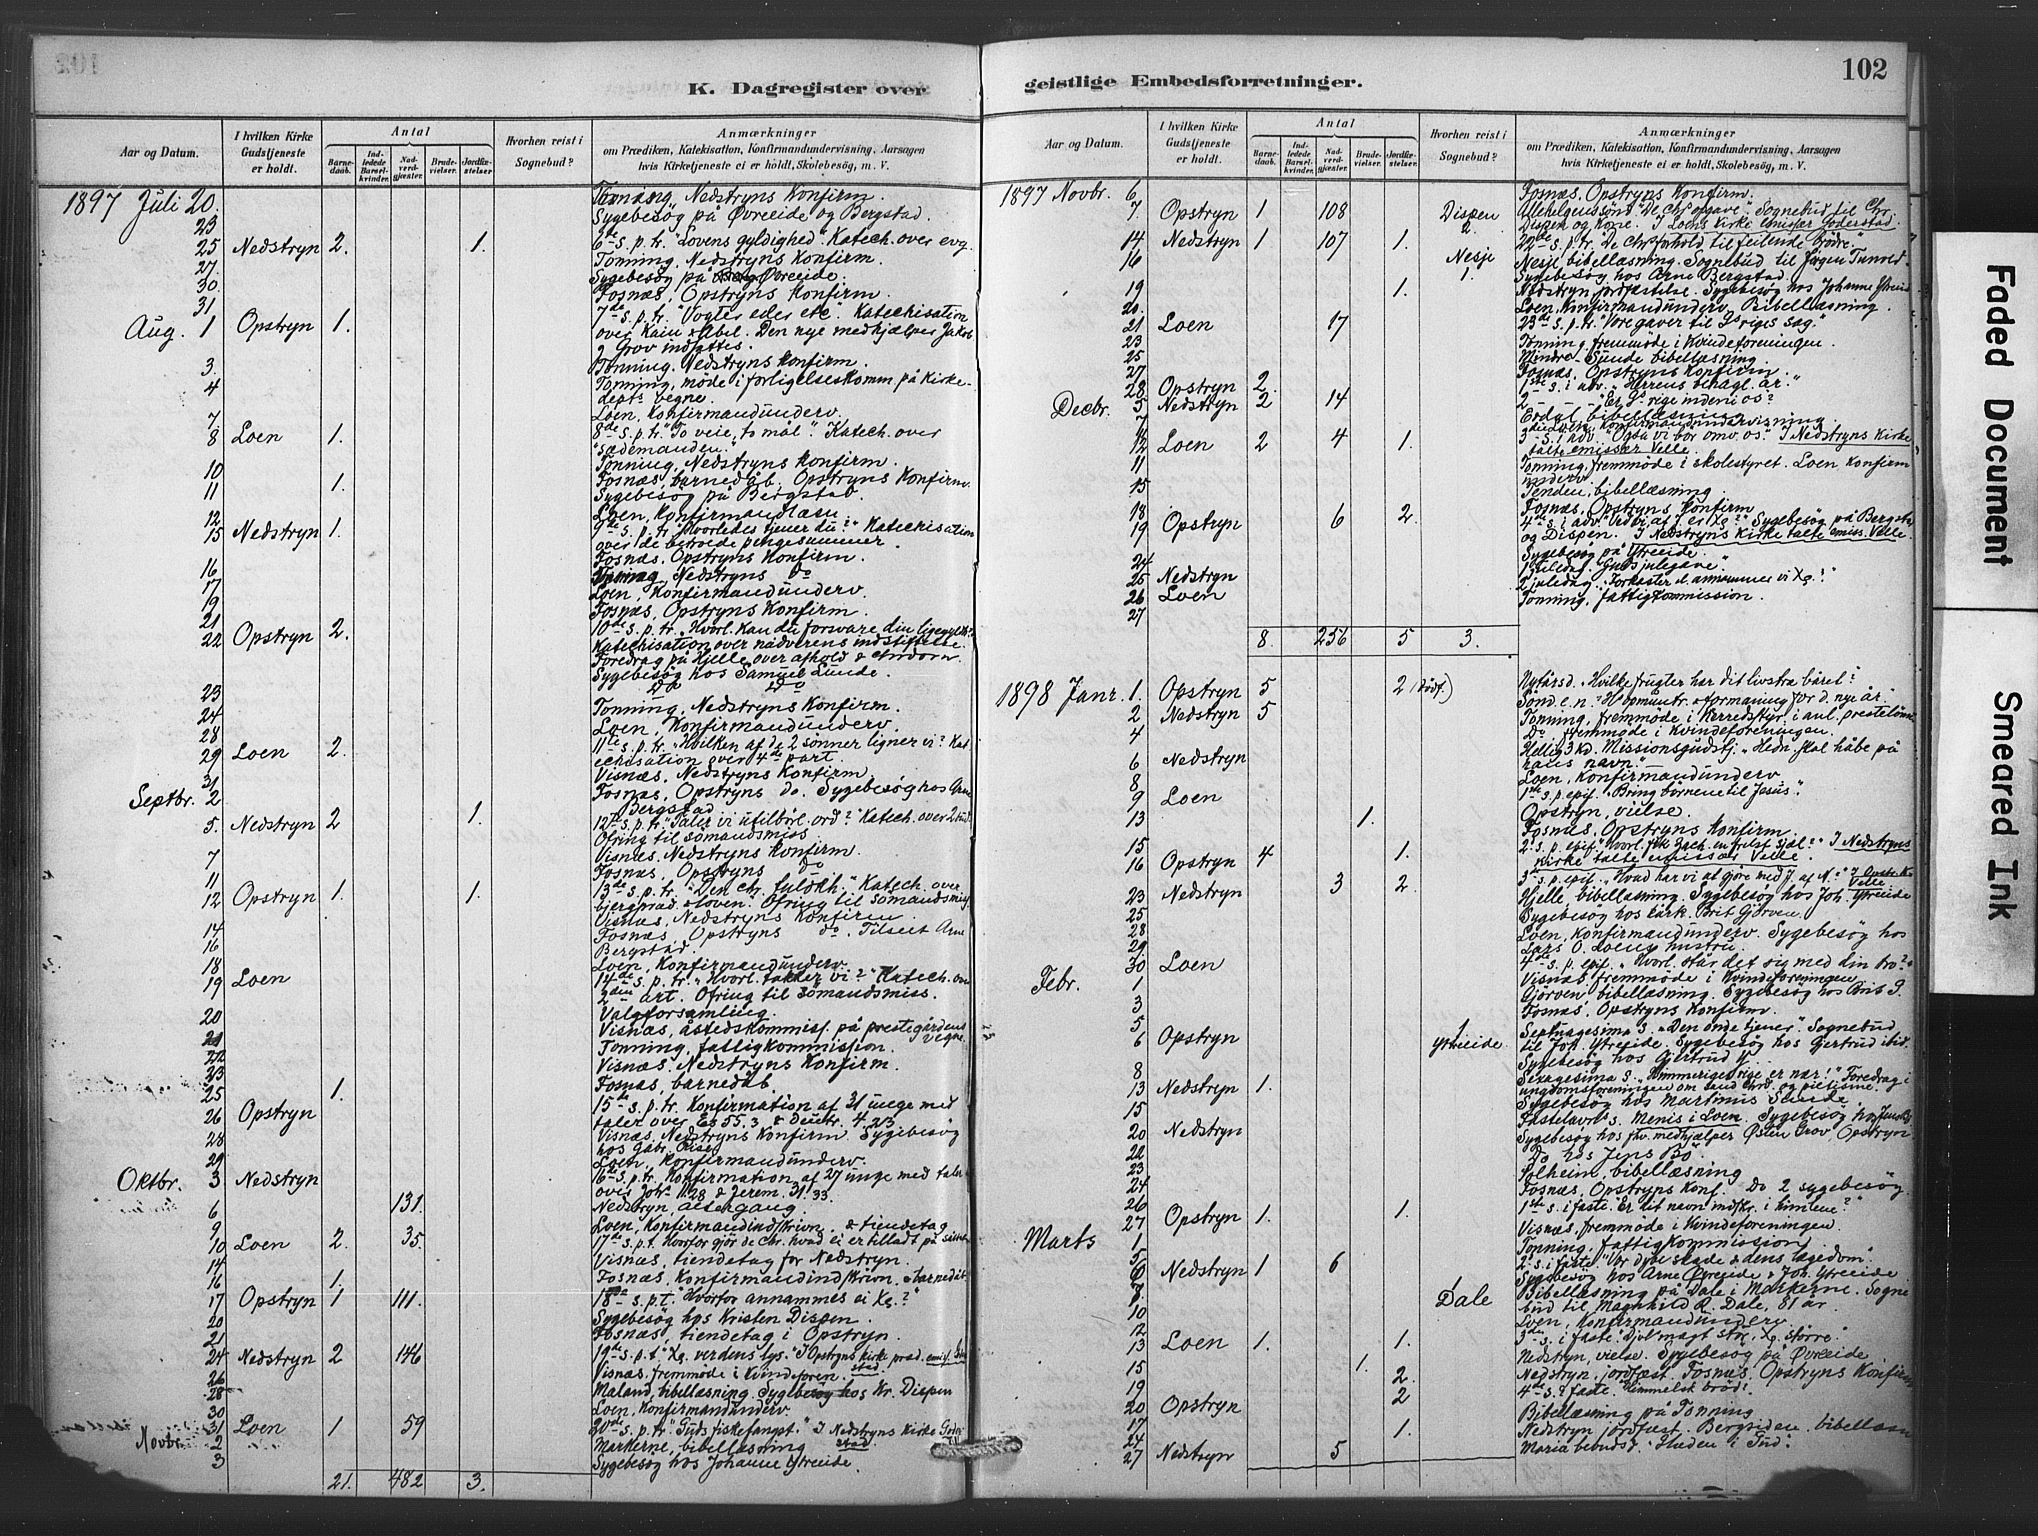 K. Dagregister over
Aar og Datum.
I hvilken Kirke Gudstjeneste er holdt.
Antal
Barne-daab.
Ind-ledede Barsel-kvinder.
Nad-verd-gjæster.
Brude-vielser.
Jordfæ-stelser
Hvorhen reist i Sognebud?
Anmærkninger
om Prædiken, Katekisation, Konfirmandundervisning, Aarsagen
hvis Kirketjeneste ei er holdt, Skolebesøg, m. V.
1897 Juli 20. Tonning, Nedstryns Konfirm.
23 Sygebesøg på Øvreeide og Bergstad.
25 Nedstryn 2. 1. 6te s. p. tr. "Lovens gyldighed". Katech. over evg.
27. Tonning, Nedstryns Konfirm.
30. Sygebesøg på Øvreeide.
31 Fosnæs, Opstryns Konfirm.
Aug. 1 Opstryn 1. 7de s. p. tr. "Vogter eder etc. Katechisation
over Kain & Abel. Den nye medhjælper Jakob
Grov indsattes.
3. Tonning, Nedstryns Konfirm.
4 Tonning, møde i forligelseskomm. på Kirke-
depts vegne.
7. Loen, Konfirmandunderv.
8 Loen 1. 8de s. p. tr. "To veie, to mål". Katech. over
"Sædemanden."
10 Tonning, Nedstryns Konfirm.
11 1. Fosnæs, barnedåb. Opstryns Konfirm.
Sygebesøg på Bergstad.
12 Loen, Konfirmandlæsn.
15 Nedstryn 1. 9de s. p. tr. "Hvorledes tjener du?" Katechisation
over de betroede pengesummer.
16 Fosnæs, Opstryns Konfirm.
17 Tonning, Nedstryns do
19 Loen, Konfirmandunderv.
21 Fosnæs, Opstryns Konfirm.
22 Opstryn 2. 10de s. p. tr. "Hvorl. kan du forsvare din
Katechisation over nadverens indstiftelse.
Foredrag på Hjelle over afhold
Sygebesøg hos Samuel Sunde.
23 Do Do
24 Tonning, Nedstryns Konfirm.
28 Loen, Konfirmandunderv.
29 Loen 2. 11te s. p. tr. "Hvilken af de 2 sønner ligner vi? Kat
echisation over 4de part.
31 Visnæs, Nedstryns Konfirm.
Septbr. 2 Fosnæs, Opstryns do. Sygebesøg hos Arne
Bergstad
5. Nedstryn 2 1. 12te s. p. tr. "Taler vi utilbørl. ord? Katech. over 2 bud.
Ofring til sømandsmiss.
7 Visnæs, Nedstryns Konfirm.
11 Fosnæs, Opstryns do
12 Opstryn 1. 1. 13de s. p. tr. "Den chr. fuldkh." Katech. over
bjergpræd. & loven. Ofring til sømandsmiss.
14 Visnæs, Nedstryns Konfirm.
16 Fosnæs, Opstryns do. Tilseet Arne
Bergstad.
18 Loen, Konfirmandunderv.
19 Loen 14de s. p. tr. "Hvorl. takker vi?" Katech. over
2den art. Ofring til sømandsmiss.
20 Valgforsamling.
21 Visnæs, åstedskommiss. på prestegårdens
vegne.
22 Tonning, fattigkommission.
23 Visnæs, Nedstryns Konfirm.
25 1. Fosnæs, barnedåb.
26 Opstryn 15de s. p. tr. Konfirmation af 31 unge med
taler over Es 55.3 & Deutr. 4. 23
28 Visnæs, Nedstryns Konfirm Sygebesøg
hos Gabr.
29 Loen, Konfirmandunderv.
Oktbr. 3 Nedstryn 16de s. p. tr. Konfirmation af 27 unge med taler
over Joh. 11.28 & Jerem. 31.33.
6 131. Nedstryn, altergang.
9 Loen, Konfirmandindskrivn. & tiendetag
10 Loen 2. 35. 17de s. p. t. Hvorfor gjør de Chr. hvad ei er tilladt på sabbat
14 Visnæs, tiendetag for Nedstryn.
16 1. Fosnæs, Konfirmandindskrivn. Barnedåb
17 Opstryn 1 111. 18de s. p. t. "Hvorfor annammes ei Xs.?"
20 Sygebesøg hos Kristen Dispen.
21 Fosnæs, tiendetag i Opstryn.
24 Nedstryn 2 146 19de s. p. t "Xs. verdens lys." I Opstryns kirke præd. emiss.
26 Visnæs, fremmøde i Kvindeforen.
28 Maland, bibellæsning. Sygebesøg hos Kr. Dispen
30 Loen, Konfirmandunderv.
31 Loen 1 59 20de s. p. tr. "Guds fiskefangst." I Nedstryns Kirke
Novbr. 2 Markerne, bibellæsning
3 Sygebesøg hos Johanne Ytreeide
21. 482 3.
geistlige Embedsforretninger.
102
Aar og Datum.
I hvilken Kirke Gudstjeneste er holdt.
Antal
Barne-daab.
Ind-ledede Barsel-kvinder.
Nad-verd-gjæster.
Brude-vielser.
Jordfæ-stelser
Hvorhen reist i Sognebud?
Anmærkninger
om Prædiken, Katekisation, Konfirmandundervisning, Aarsagen
hvis Kirketjeneste ei er holdt, Skolebesøg, m. V.
1897 Novbr. 6 Fosnæs, Opstryns Konfirm.
7. Opstryn 1 108 Dispen 2. Allehelgenssønd. "De Chr. opgave". Sognebud til Chr.
Dispen og Kone. I Loens Kirke emissær Goderstad.
14 Nedstryn 1 107 1. 22de s. p. tr. De Chr. forhold til feilende brødre.
16 Nesje 1. Nesje bibellæsning. Sognebud til Jørgen
Sygebesøg hos Arne Bergstad.
19 1. Nedstryn jordfæstelse. Sygebesøg hos Johanne Ytreeid
20. Loen, Konfirmandunderv. Bibellæsning.
21 Loen 17 23de s. p. tr. "Vore gaver til Gs riges sag."
23 Tonning, fremmøde i Kvindeforeningen.
25 Sunde bibellæsning.
27 Fosnæs, Opstryns Konfirm.
28 Opstryn 2. 1ste s. i adv. "Herrens behagl. år."
Decbr. 5 Nedstryn 2 14 2 "Er Gs rige inden i os?
7 Erdal, bibellæsning
Loen, Konfirmandundervisning
12 Loen 2 4 1. 3die s. i adv. "Også vi bør omv. os." I Nedstryns Kirke
talte emissær Velle.
11 Tonning, fremmøde i skolestyret. Loen Konfirm
underv.
15 Tenden, bibellæsning.
18 Fosnæs, Opstryns Konfirm
19 Opstryn 6 2. 4de s. i adv. Sygebesøg på Bergst.
og Dispen. I Nedstryns Kirke talte emiss. Velle.
24 Sygebesøg på Ytreeide.
25 Nedstryn 1 juledag. "Guds julegave".
26 Loen 2 juledag. "Forkaster el. annammer vi Xs.?"
27 Tonning, fattigkommission.
8 256 5 3.
1898 Janr. 1. Opstryn 5 2 Nytårsd. "Hvilke frugter har dit livstræ båret?
2 Nedstryn 5 Sønd. e. n. opmuntr. & formaning for d. nye år.
4 Tonning, fremmøde i Herredstyr. i anl. prestelønn.
Do, fremmøde i Kvindeforeningen.
6 Nedstryn Hellig 3 kd. Missionsgudstj. "Hedn. skal håbe på
hans navn."
8 Loen, Konfirmandunderv
9 Loen 1ste s. p. epif. "Bring børnene til Jesus".
13 1. Opstryn, vielse.
15 Fosnæs, Opstryns Konfirm
16 Opstryn 4 1. 2. s. p. epif. I Nedstryns
Kirke talte emissær Velle.
23 Nedstryn 3 2 3die s. p. epif. "Hvad har vi at gjøre med J. af N." I Opstr. K.
Velle.
25 Hjelle, bibellæsning. Sygebesøg hos Joh. Ytreeide
28 Sygebesøg hos kirk. Brit Gjørven.
29 Loen, Konfirmandunderv. Sygebesøg hos
Lars O. Loens hustru
30 Loen 4de s. p. epif. "Hvorl. står det sig med din tro?"
Febr. 1 Visnæs, fremmøde i Kvindeforeningen
3 Gjørven bibellæsning. Sygebesøg hos Brit G.
5 Fosnæs, Opstryns Konfirm.
6 Opstryn 1 Ytreeide. Septuagesima S. "Den onde tjener". Sognebud
til Joh. Ytreeide. Sygebesøg hos Gjertrud ibid.
8 Sygebesøg hos Gjertrud Y.
13 Nedstryn 1. Sexagesima S. "Himmeriges rige er nær!" Foredrag i
ungdomsforeningen om sand chrd. og pietisme.
15 Sygebesøg hos Martinus Sunde.
20 Nedstryn Fastelavns S. Menis i Loen. Sygebesøg hos
22 Sygebesøg hos fhv. medhjælper Østen Grov, Opstryn
23 Do hos Jens Bø
24 Solheim, bibellæsning
26 Fosnæs, Opstryns Konf. Do 2 sygebesøg.
27 Opstryn 1. 1. 1ste s. i faste. Er dit navn indskr. i himlene?"
Marts 1 Visnæs, fremmøde i Kvindeforeningen.
5 Tonning, fattigkommission
6 Nedstryn 1 6 2. s. i faste. "Vor dybe skade & dens lægedom".
Sygebesøg hos Arne Øvreeide & Joh. Ytreeide.
8 1 Dale Bibellæsning på Dale i Markerne. Sogne
bud til Magnhild R. Dale, 81 år.
10 Loen, Konfirmandunderv.
12
13 Loen 1. 1. 3die s. i faste "Djvl. magt stor, Xs. større."
15 1. Nedstryn, vielse. Sygebesøg på Øvreeide
19 2 Nedstryn, jordfæst. Fosnæs, Opstryns Konfirm
20 Opstryn 2 4de s. i faste. "Himmelsk brød".
17 Bibellæsning på Tonning
24 1. Nedstryn jordfæst. bibellæsn
27 Nedstryn 5 Maria bebudd. "Gud".
Faded Document
Smeared Ink